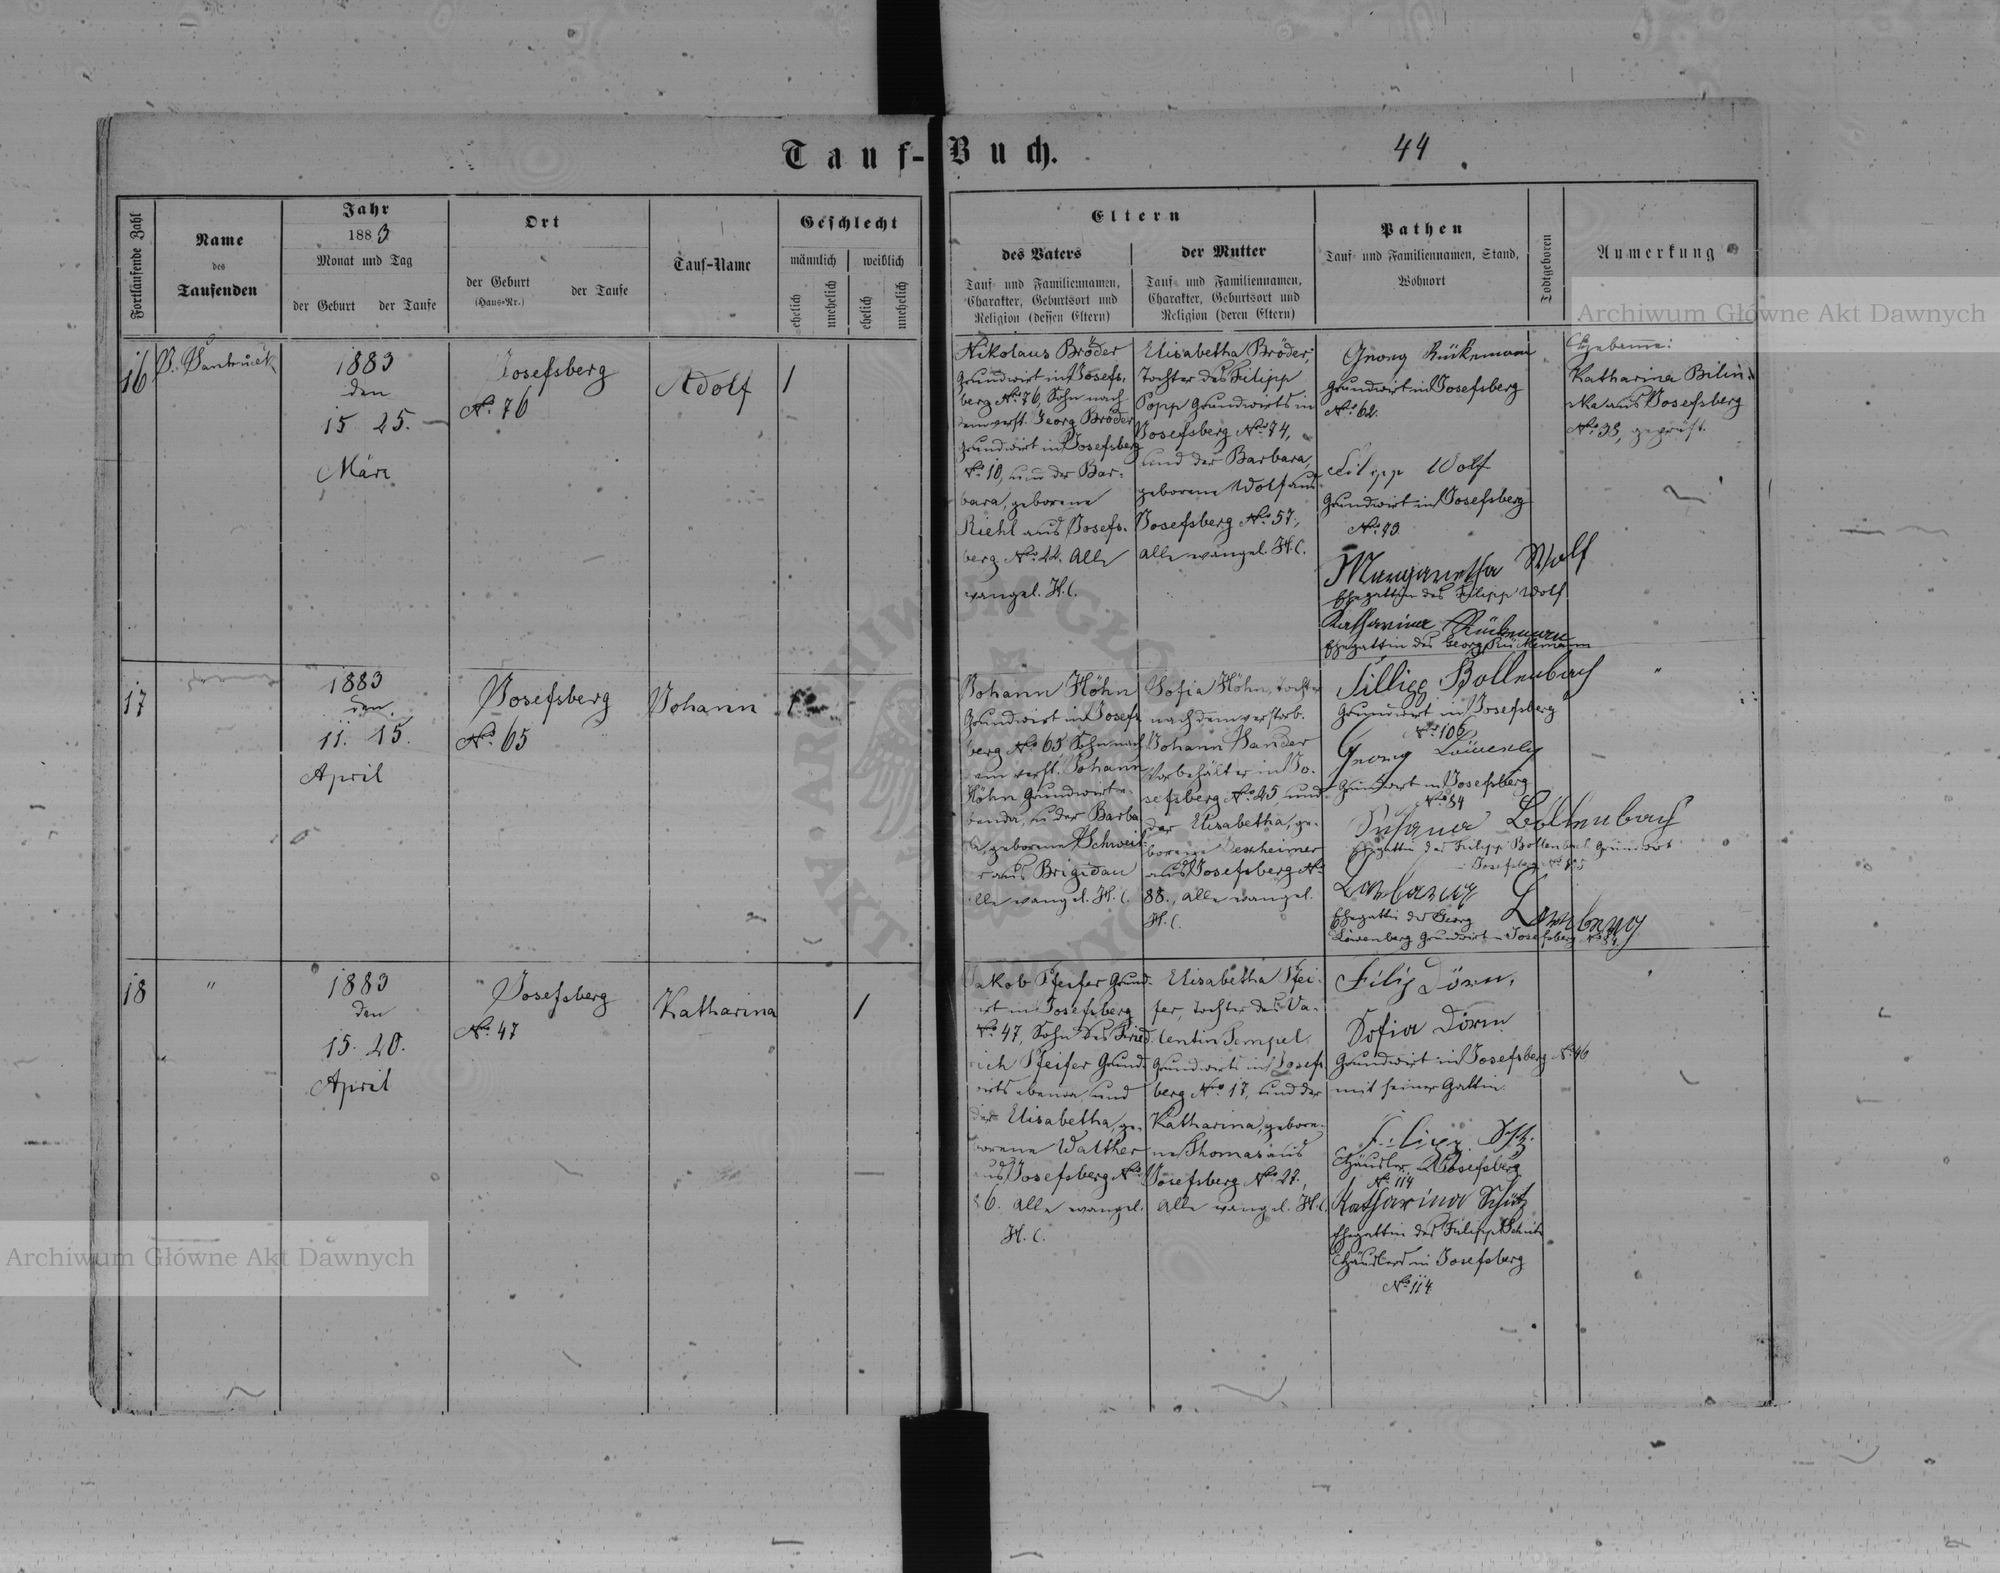 Tauf-Buch.
44
Fortlaufende Zahl
Name
des
Taufenden
Jahr
1883
Monat und Tag
der Geburt der Taufe
Ort
der Geburt
(Haus-Nr.)
der Taufe
Tauf-Name
Geschlecht
männlich weiblich
ehelich unehelich ehelich unehelich
Eltern
des Vaters
Tauf- und Familiennamen,
Charakter, Geburtsort und
Religion (dessen Eltern)
der Mutter
Tauf- und Familiennamen,
Charakter, Geburtsort und
Religion (deren Eltern)
Pathen
Tauf- und Familiennamen, Stand,
Wohnort
Todtgeboren
Anmerkung
Archiwum Główne Akt Dawnych
16
1883
den
15 25.
März
Josefsberg
No. 76
Adolf
1
Nikolaus Bröder
Grundwirt in Josefs-
berg No. 76, Sohn nach
dem verst. Georg Bröder
Grundwirt in Josefsberg
No. 10, und der Bar-
bara, geborene
Riehl aus Josefs-
berg No. 22. Alle
evangel. H.C.
Elisabetha Bröder,
Tochter des Filipp
Popp Grundwirts in
Josefsberg No. 74,
und der Barbara,
geborene Wolf aus
Josefsberg No. 57.,
alle evangel. H.C.
Georg Rückemann
Grundwirt in Josefsberg
No. 62.
Filipp Wolf
Grundwirt in Josefsberg
No. 73
Margaretha Wolf
Ehegattin des Filipp Wolf
Katharina Rückemann
Ehegattin des Georg Rückemann
Hebamme:
Katharina Bilin-
ska aus Josefsberg
No. 33, geprüft.
17
1883
den
11. 15.
April
Josefsberg
No. 65
Johann
1
Johann Höhn
Grundwirt in Josefs-
berg No. 65 Sohn nach
dem verst. Johann
Höhn Grundwirt e-
benda, u. der Barba
geborene Schweit
aus Brigidau
alle evangel. H.C.
Sofia Höhn, Tochter
nach dem verstorb.
Johann Sander
Vorbehälter in Jo-
sefsberg No. 25, und
der Elisabetha, ge-
borene Dexheimer
aus Josefsberg No.
88., alle evangel.
H.C.
Fillipp Bollenbach
Grundwirt in Josefsberg
No. 106
Georg
Grundwirt in Josefsberg
No. 84
Susana Bollenbach
Ehegattin des Filipp Bollenbach Grundwirt
Ehegattin des Georg
Löwenberg Grundwirt in Josefsberg
18
"
1883
den
15. 20.
April
Josefsberg
No. 47
Katharina
1
Jakob Pfeifer Grund-
wirt in Josefsberg
No. 47, Sohn des Fried-
rich Pfeifer Grund-
wirts ebenda und
der Elisabetha, ge-
borene Walther
aus Josefsberg No.
6. Alle evangel.
H.C.
Elisabetha Pfei-
fer, Tochter des Va-
lentin Tempel,
Grundwirts in Josefs-
berg No. 17, und der
Katharina, gebore-
ne Thomas aus
Josefsberg No. 27.,
alle evangel. H.C.
Filip Dörn,
Sofia Dörn
Grundwirt in Josefsberg No. 46
mit seiner Gattin.
Filipp
Häusler in Josefsberg
No. 114
Katharina Schütz
Ehegattin des Filipp Schütz
Häuslers in Josefsberg
No. 114
Archiwum Główne Akt Dawnych